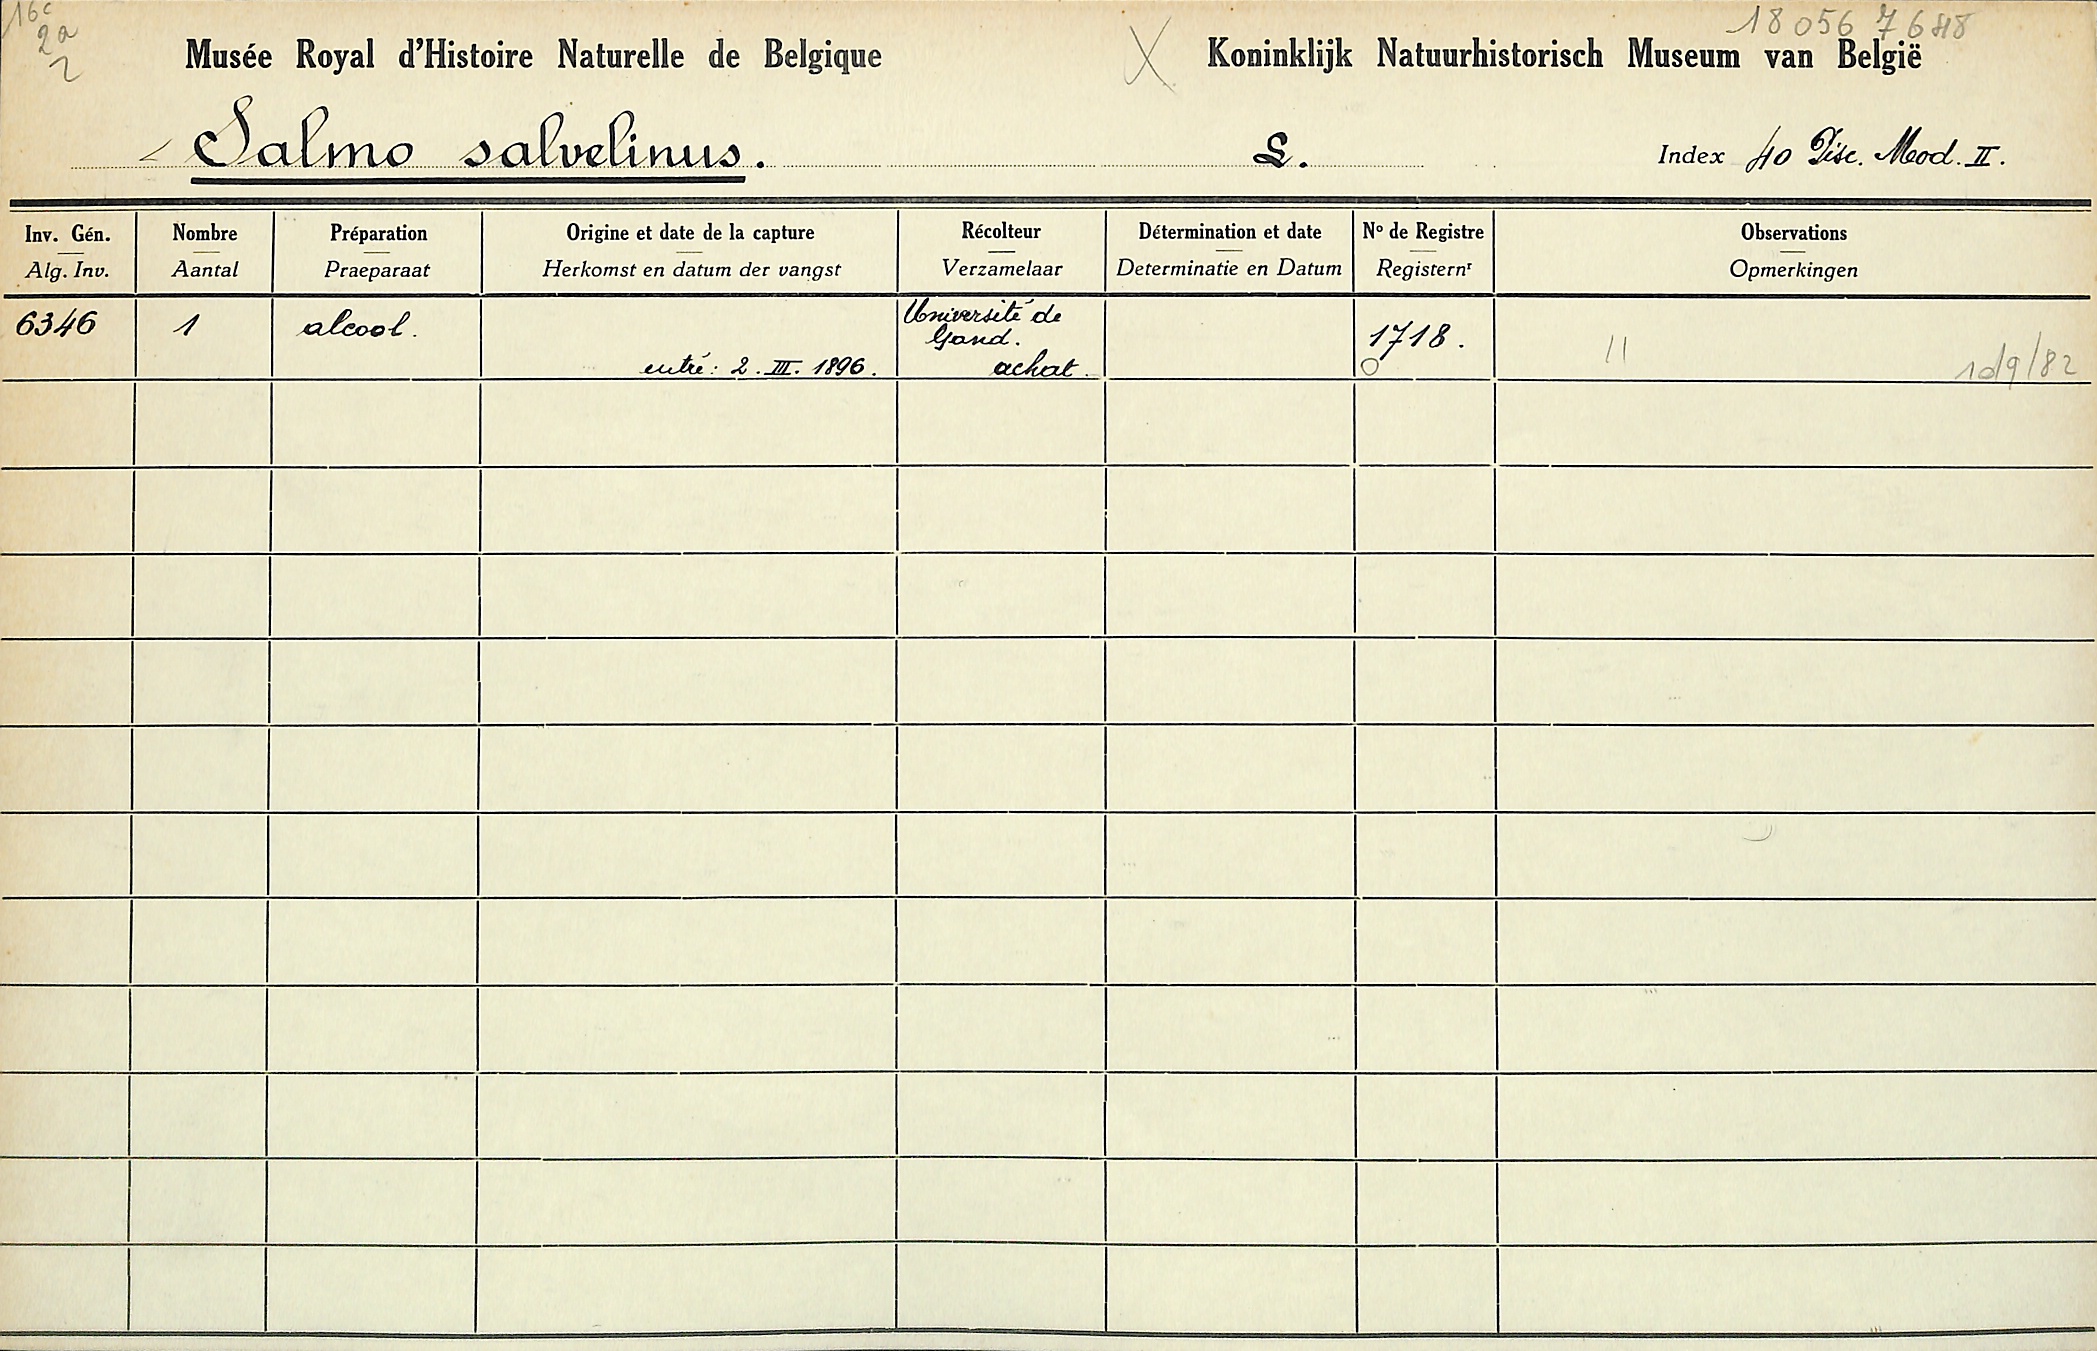 16c
2a
2
18056 7688
Musée Royal d'Histoire Naturelle de Belgique
X Koninklijk Natuurhistorisch Museum van België
Salmo salvelinus. L. Index 40 Pisc. Mod. II.
Inv. Gén. Nombre Préparation Origine et date de la capture Récolteur Détermination et date No de Registre Observations
Alg. Inv. Aantal Praeparaat Herkomst en datum der vangst Verzamelaar Determinatie en Datum Registernr Opmerkingen
6346 1 alcool. Université de
Gand. 1718.
entré: 2. III. 1896. achat.